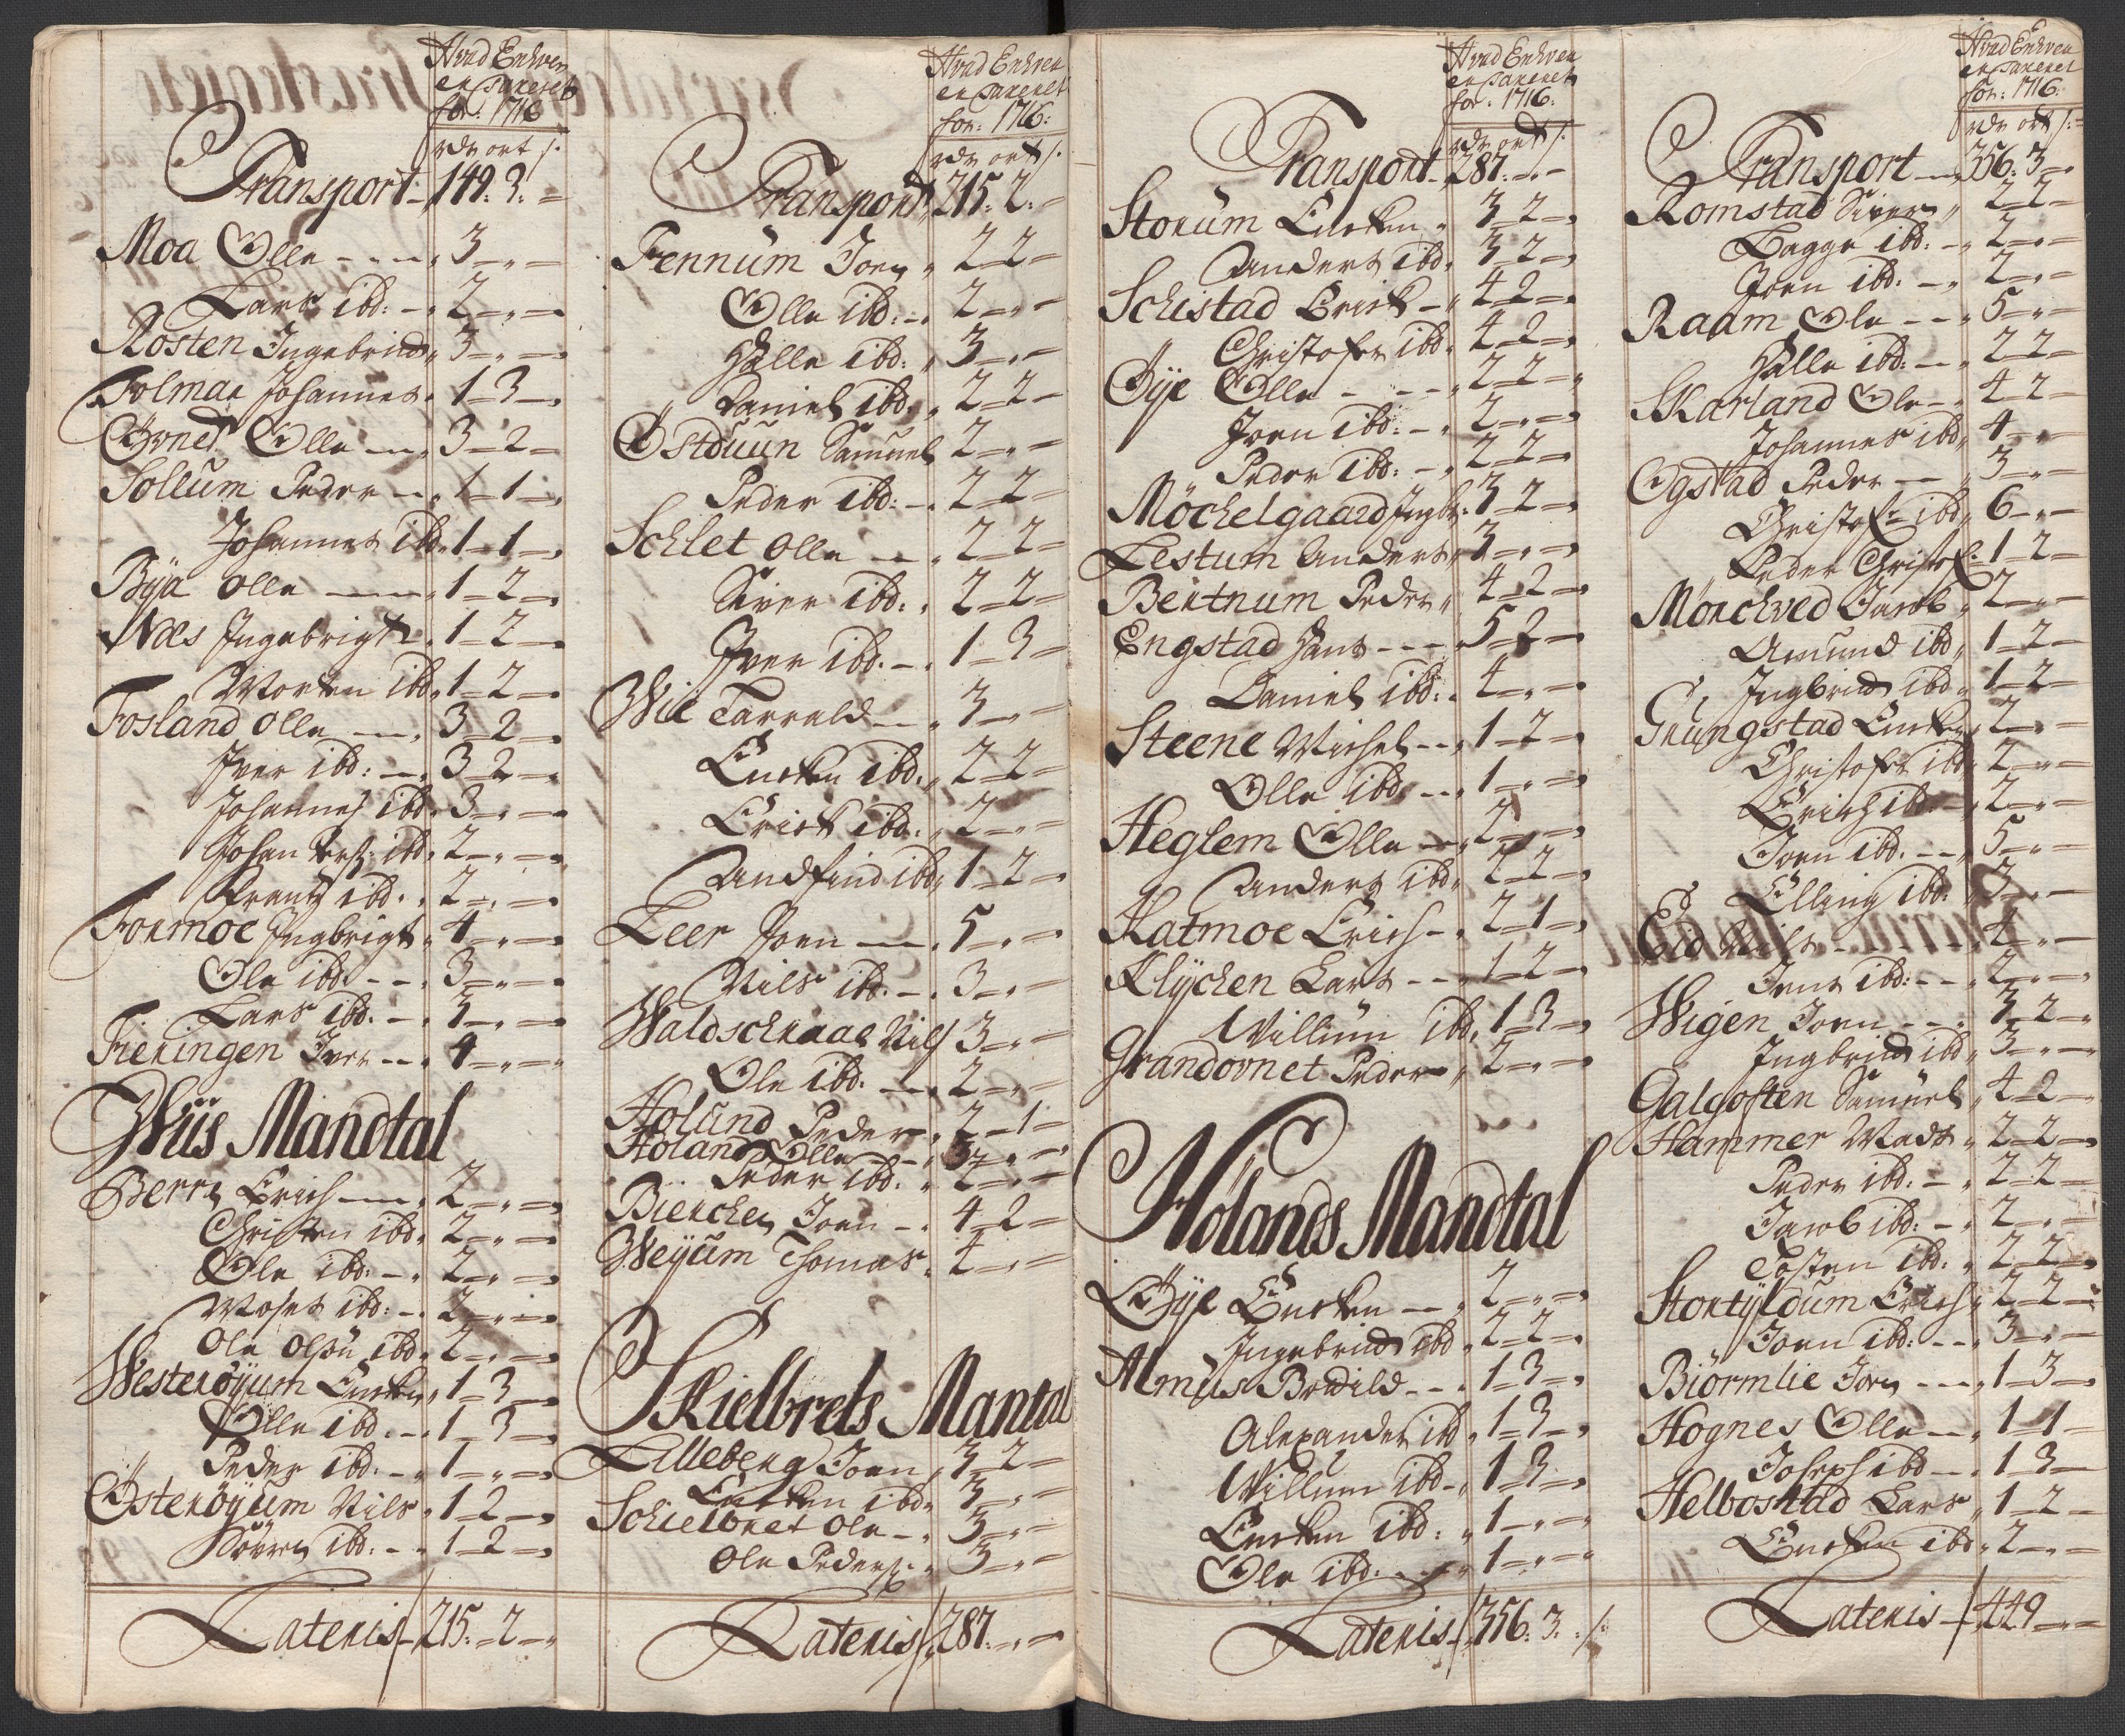 Hvad Enhver
er Taxeret
for: 1716
rdr ort s:
Transport - 149: 3: -
Moa Olle - - - 3 - " -
Lars ibd: - 2 - " -
Rosten Ingebricht 3 - " -
Tolmar Johannes 1 - 3 -
Olle - 3 - 2 -
Sollum Peder - 1 - 1 -
Johannes ibd 1 - 1 -
Bÿa Olle - 1 - 2 -
Næs Ingebrigt 1 - 2 -
Morten ibd 1 - 2 -
Fosland Olle - 3 - 2 -
Iver ibd: - 3 - 2 -
Johannes ibd 3 - " -
Johan ibd 2 - " -
Frantz ibd: 2 - " -
Formoe Ingbrigt 4 - " -
Ole ibd: - - 3 - " -
Lars ibd: - 3 - " -
Fieringen Iver - - 4 - " -
Wiis Mandtal
Berre Erich - 2 - " -
Christen ibd 2 - " -
Ole ibd: - 2 - " -
Moses ibd: - 2 - " -
Ole Olsøn ibd 2 - " -
Westerøÿum Encken 1 - 3 -
Olle ibd: - 1 - 3 -
Peder ibd: - 1 - " -
Østerøÿum Nils 1 - 2 -
ibd: - - 1 - 2 -
Lateris - 215: - 2 -
Hvad Enhver
er Taxeret
for: 1716:
rdr ort s:
Transport 215: 2: -
Fennum Joen 2 - 2 -
Olle ibd: - 2 - " -
Halle ibd: 3 - " -
Daniel ibd: 2 - 2 -
Østduun Samuel 2 - " -
Peder ibd: - 2 - 2 -
Schlet Olle - 2 - 2 -
Siver ibd: 2 - 2 -
Iver ibd: - 1 - 3 -
Wie Tarrald - 3 - " -
Encken ibd: 2 - 2 -
Erick ibd: 2 - " -
Andfind ibd 1 - 2 -
Leer Joen - 5 - " -
Nils ibd: - 3 - " -
Waldschraal Nils 3 - " -
Ole ibd: - 2 - " -
Holand Peder 2 - 1 -
Holand Olle - 3 - " -
Peder ibd: 2 - " -
Biercken Joen - 4 - 2 -
Weÿum Thomas 4 - " -
Skielbreds Mantal
Lilleberg Joen 3 - 2 -
Encken ibd 3 - " -
Schielbret Ole - 3 - " -
Ole Peders: 3 - " -
Lateris 287: - " -
Hvad Enhver
er Taxeret
for: 1716:
rdr ort s:
Transport 287: - " -
Storum Encken 3 - 2 -
Anders ibd 3 - 2 -
Schistad Erick - 4 - 2 -
Christofer ibd 4 - 2 -
Øÿe Olle - - - 2 - 2 -
Joen ibd: - 2 - " -
Peder ibd: - 2 - 2 -
Möchelgaard Ingbr: 3 - 2 -
Lestum Anders 3 - " -
Bertnum Peder 4 - 2 -
Engstad Hans - - - 5 - 2 -
Daniel ibd: 4 - " -
Steene Michel - - 1 - 2 -
Olle ibd - - 1 - " -
Heglem Olle - 2 - " -
Anders ibd 2 - 2 -
Hatmoe Erich - 2 - 1 -
Klÿcken Lars - - 1 - 2 -
Villum ibd 1 - 3 -
Grandovnet Peder 2 - " -
Hölands Mandtal
Øÿe Encken - 2 - " -
Ingebricht ibd 2 - 2 -
Almus Bodild - - 1 - 3 -
Alexander ibd 1 - 3 -
Villum ibd - 1 - 3 -
Encken ibd: 1 - " -
Ole ibd: - 1 - " -
Lateris - 356: 3: s:
Hvad Enhver
er Taxeret
for: 1716:
rdr ort s:
Transport - 356: 3 -
Romstad Siver 2 - 2 -
Bagge ibd: - 2 - " -
Joen ibd: - 2 - " -
Raam Ole - - 5 - " -
Halle ibd: - 2 - 2 -
Skarland Ole - 4 - 2 -
Johannes ibd 4 - " -
Ogstad Peder - 3 - " -
Christof: ibd 6 - " -
Peder Christof: 1 - 2 -
Mörchved Jacob 2 - " -
Amund ibd 1 - 2 -
Ingbricht ibd 1 - 2 -
Grungstad Encken 2 - " -
Christofer ibd 2 - " -
Erich ibd - 2 - " -
Joen ibd. - - 5 - " -
Elling ibd: 3 - " -
Eid Nils - - - 4 - " -
Jens ibd: - - 2 - " -
Wigen Joen - - 3 - 2 -
Ingbricht ibd 3 - " -
Galgoften Samuel 4 - 2 -
Hammer Mads 2 - 2 -
Peder ibd: - 2 - 2 -
Jacob ibd: - 2 - " -
Tosten ibd: 2 - 2 -
Stortÿldum Erich 2 - 2 -
Joen ibd: - - 3 - " -
Biörmlie Joen - - 1 - 3 -
Hognes Olle - 1 - 1 -
Joseph ibd - 1 - 3 -
Helbostad Lars 1 - 2 -
Encken ibd 2 - " -
Lateris - 449 - " -